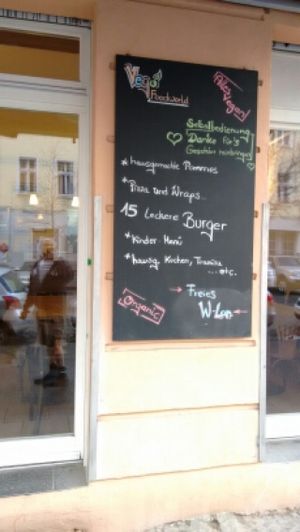 Vego
Foodworld
Alles
Vegan!
Selbstbedienung
Danke für's
Geschirr
* hausgemachte Pommes
* Pizza und Wraps...
15 leckere Burger
* Kinder Menü
* hausg. Kuchen, Tiramisu
....etc.
Organic
→ Freies
W-Lan ←